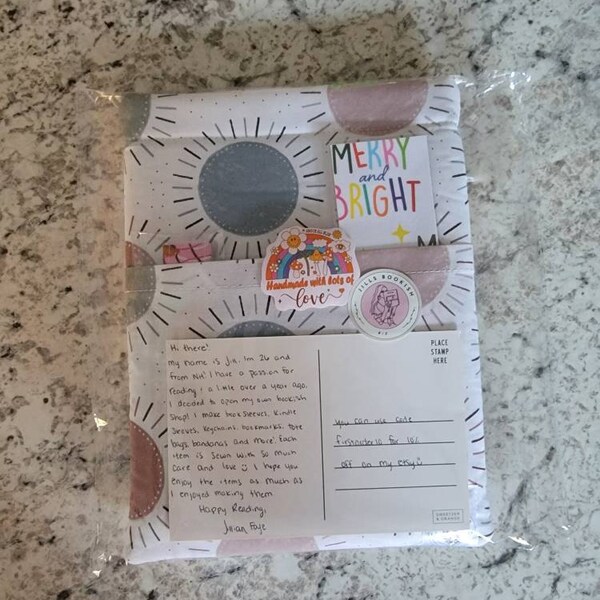 MERRY
and
BRIGHT
M
Handmade with lots of
love
JILLS BOOKISH
Hi there!
my name is Jill, Im 26 and
from NH! I have a passion for
reading & a little over a year ago,
I decided to open my own bookish
shop! I make book sleeves, Kindle
sleeves, keychains, bookmarks, tote
bags, bandanas and more! Each
item is sewn with so much
care and love I hope you
enjoy the items as much as
I enjoyed making them
Happy Reading,
Jillian Faye
PLACE
STAMP
HERE
you can use code
firstorder10 for 10%
off on my etsy